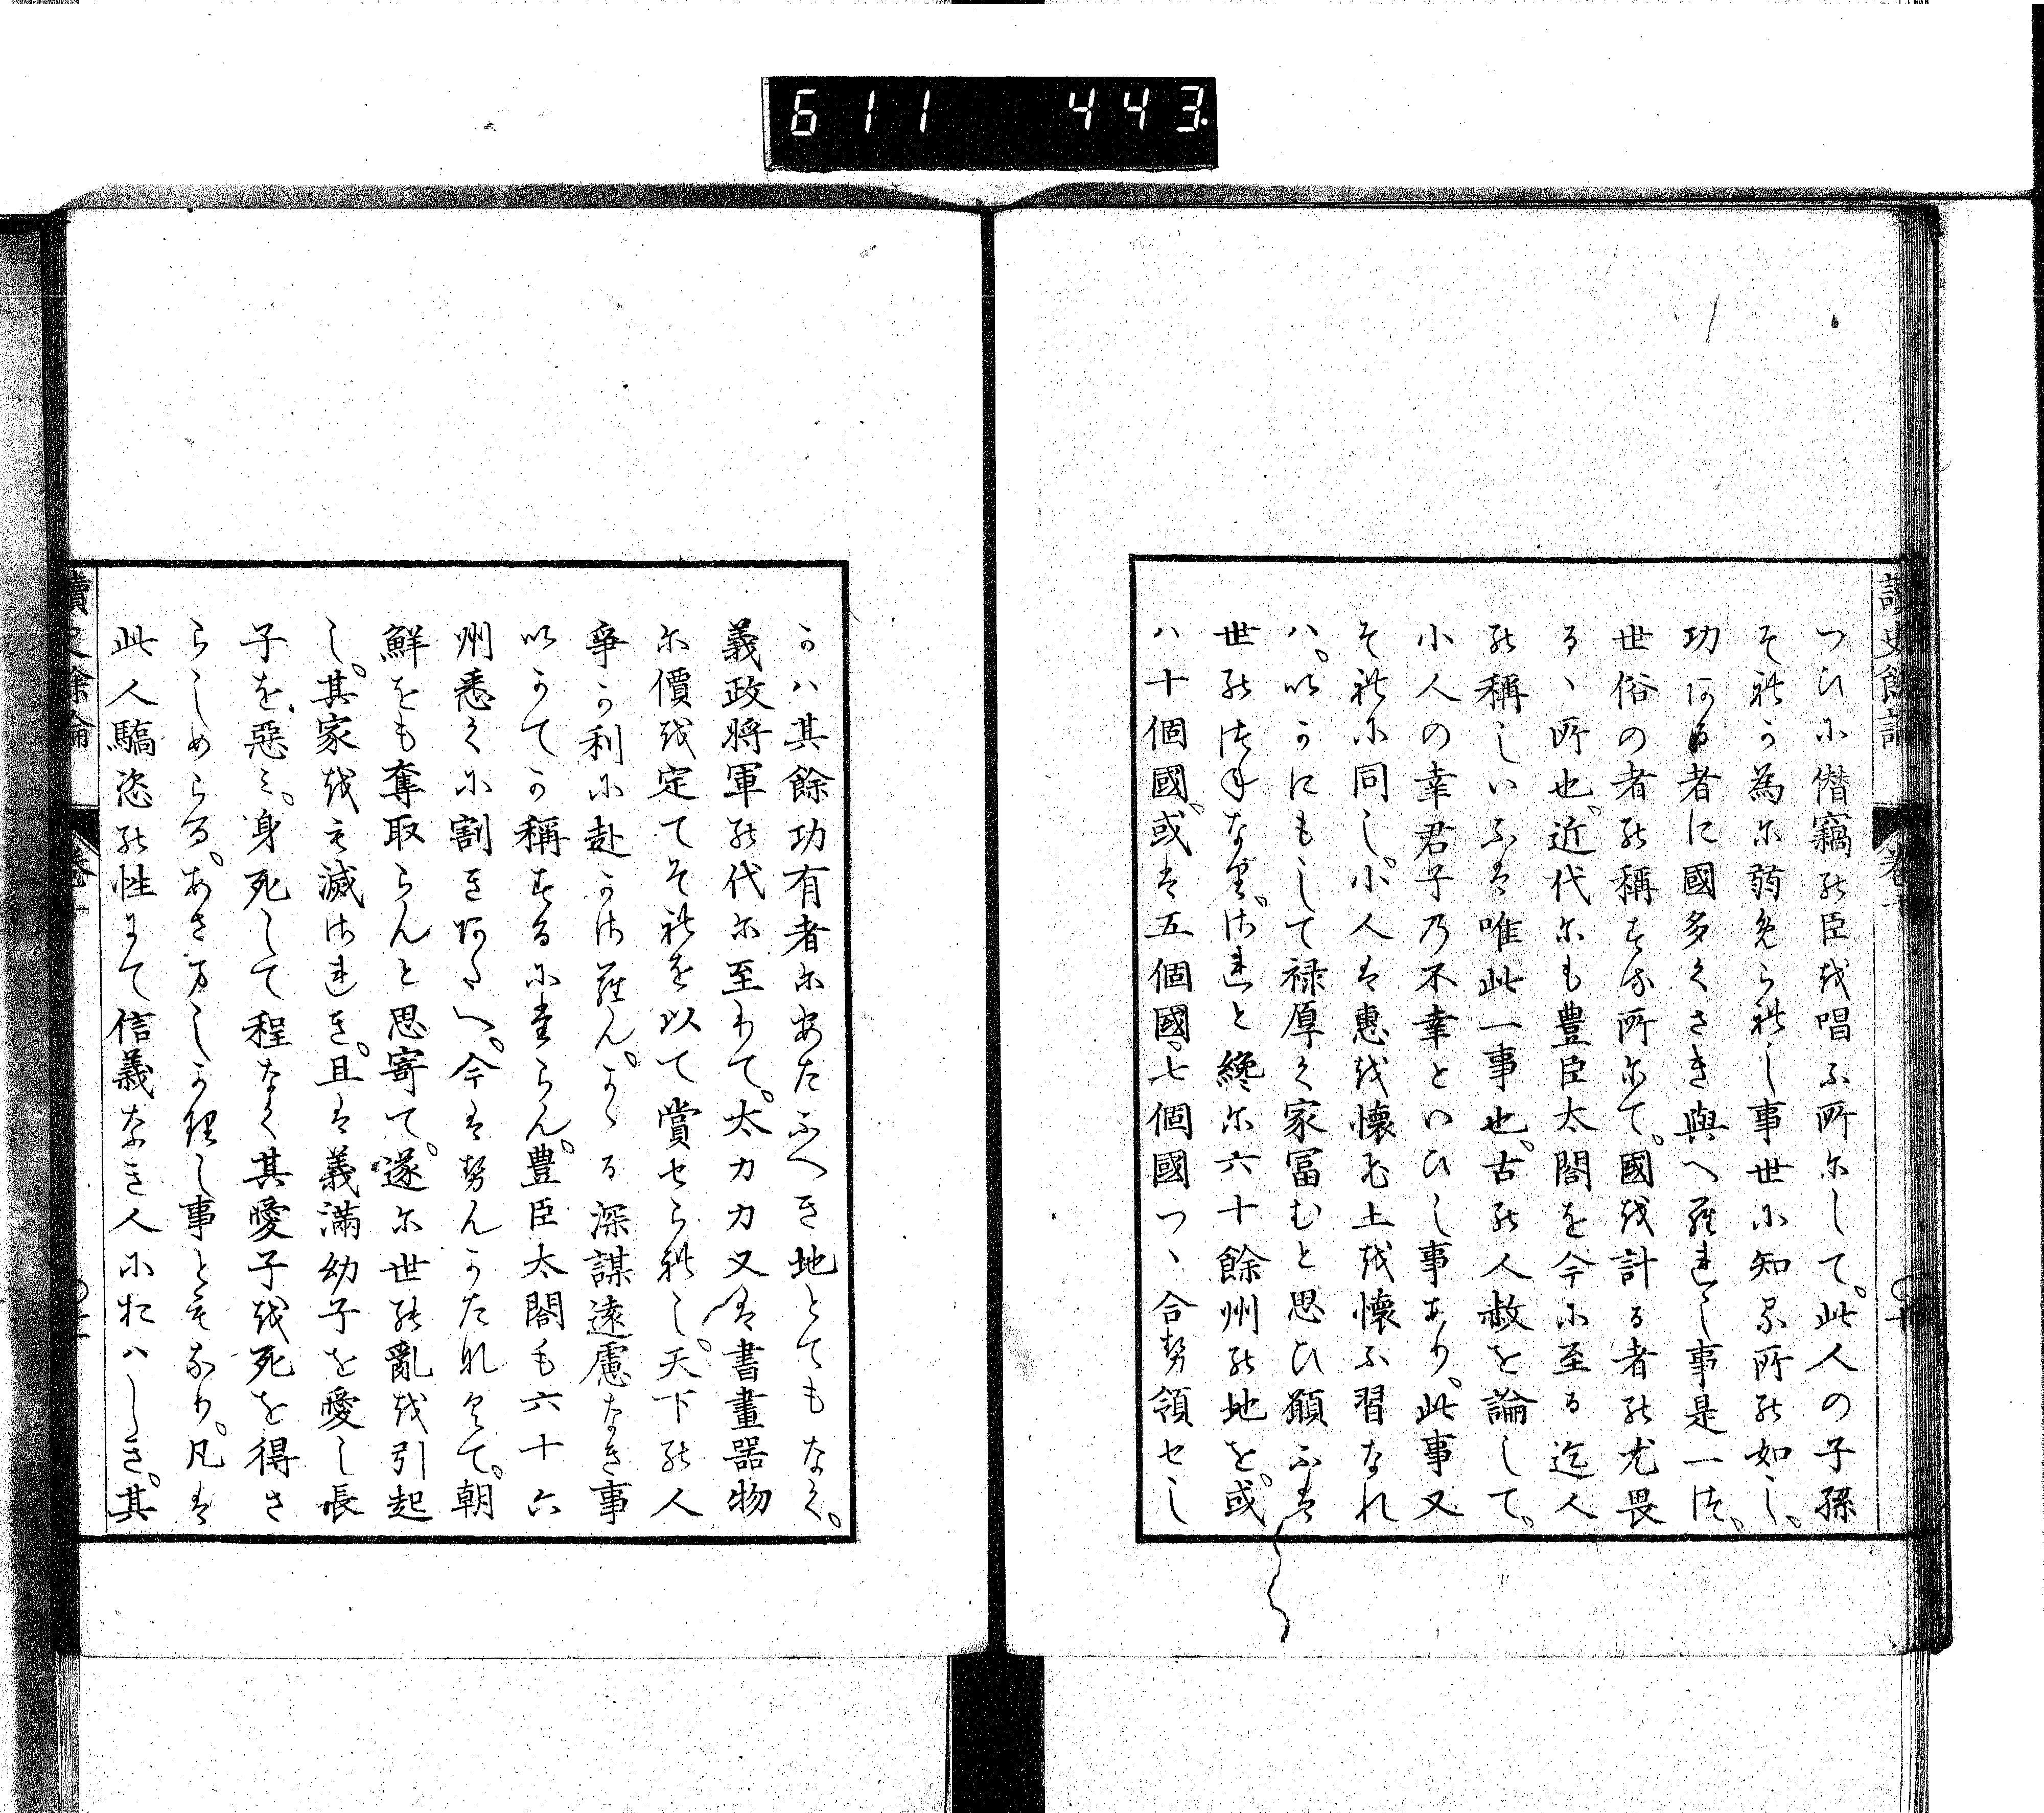 611 443
讀史餘論 卷十
つひに僭竊の臣を唱ふ所にして。此人の子孫
それか為に弱められし事世に知る所の如し。
功ある者に國多くさき與へられし事是一つ。
世俗の者の稱する所にて。國を計る者の尤畏
るゝ所也。近代にも豊臣太閤を今に至る迄人
の稱しいふは唯此一事也。古の人赦を論して。
小人の幸君子乃不幸といひし事あり。此事又
それに同し。小人は惠を懷ひ土を懷ふ習なれ
ハ。いかにもして禄厚く家冨むと思ひ願ふは
世のつねなり。されと纔に六十餘州の地を。或
八十個國。或は五個國。七個國つゝ合せ領せし
かハ其餘功有者にあたふへき地とてもなく。
義政將軍の代に至りて。太刀刀又は書畫器物
に價を定てそれを以て賞せられし。天下の人
爭か利に赴かさらん。かゝる深謀遠慮なき事
いかてか稱するに堪らん。豊臣太閤も六十六
州悉くに割きあたへ。今はせんかたなくて。朝
鮮をも奪取らんと思寄て。遂に世の亂を引起
し。其家を亡滅されき。且は義滿幼子を愛し長
子を惡ミ。身死して程なく其愛子を死を得さ
らしめらる。あさましかりし事ともなり。凡は
此人驕恣の性にて信義なき人におハしき。其
讀史餘論 卷十